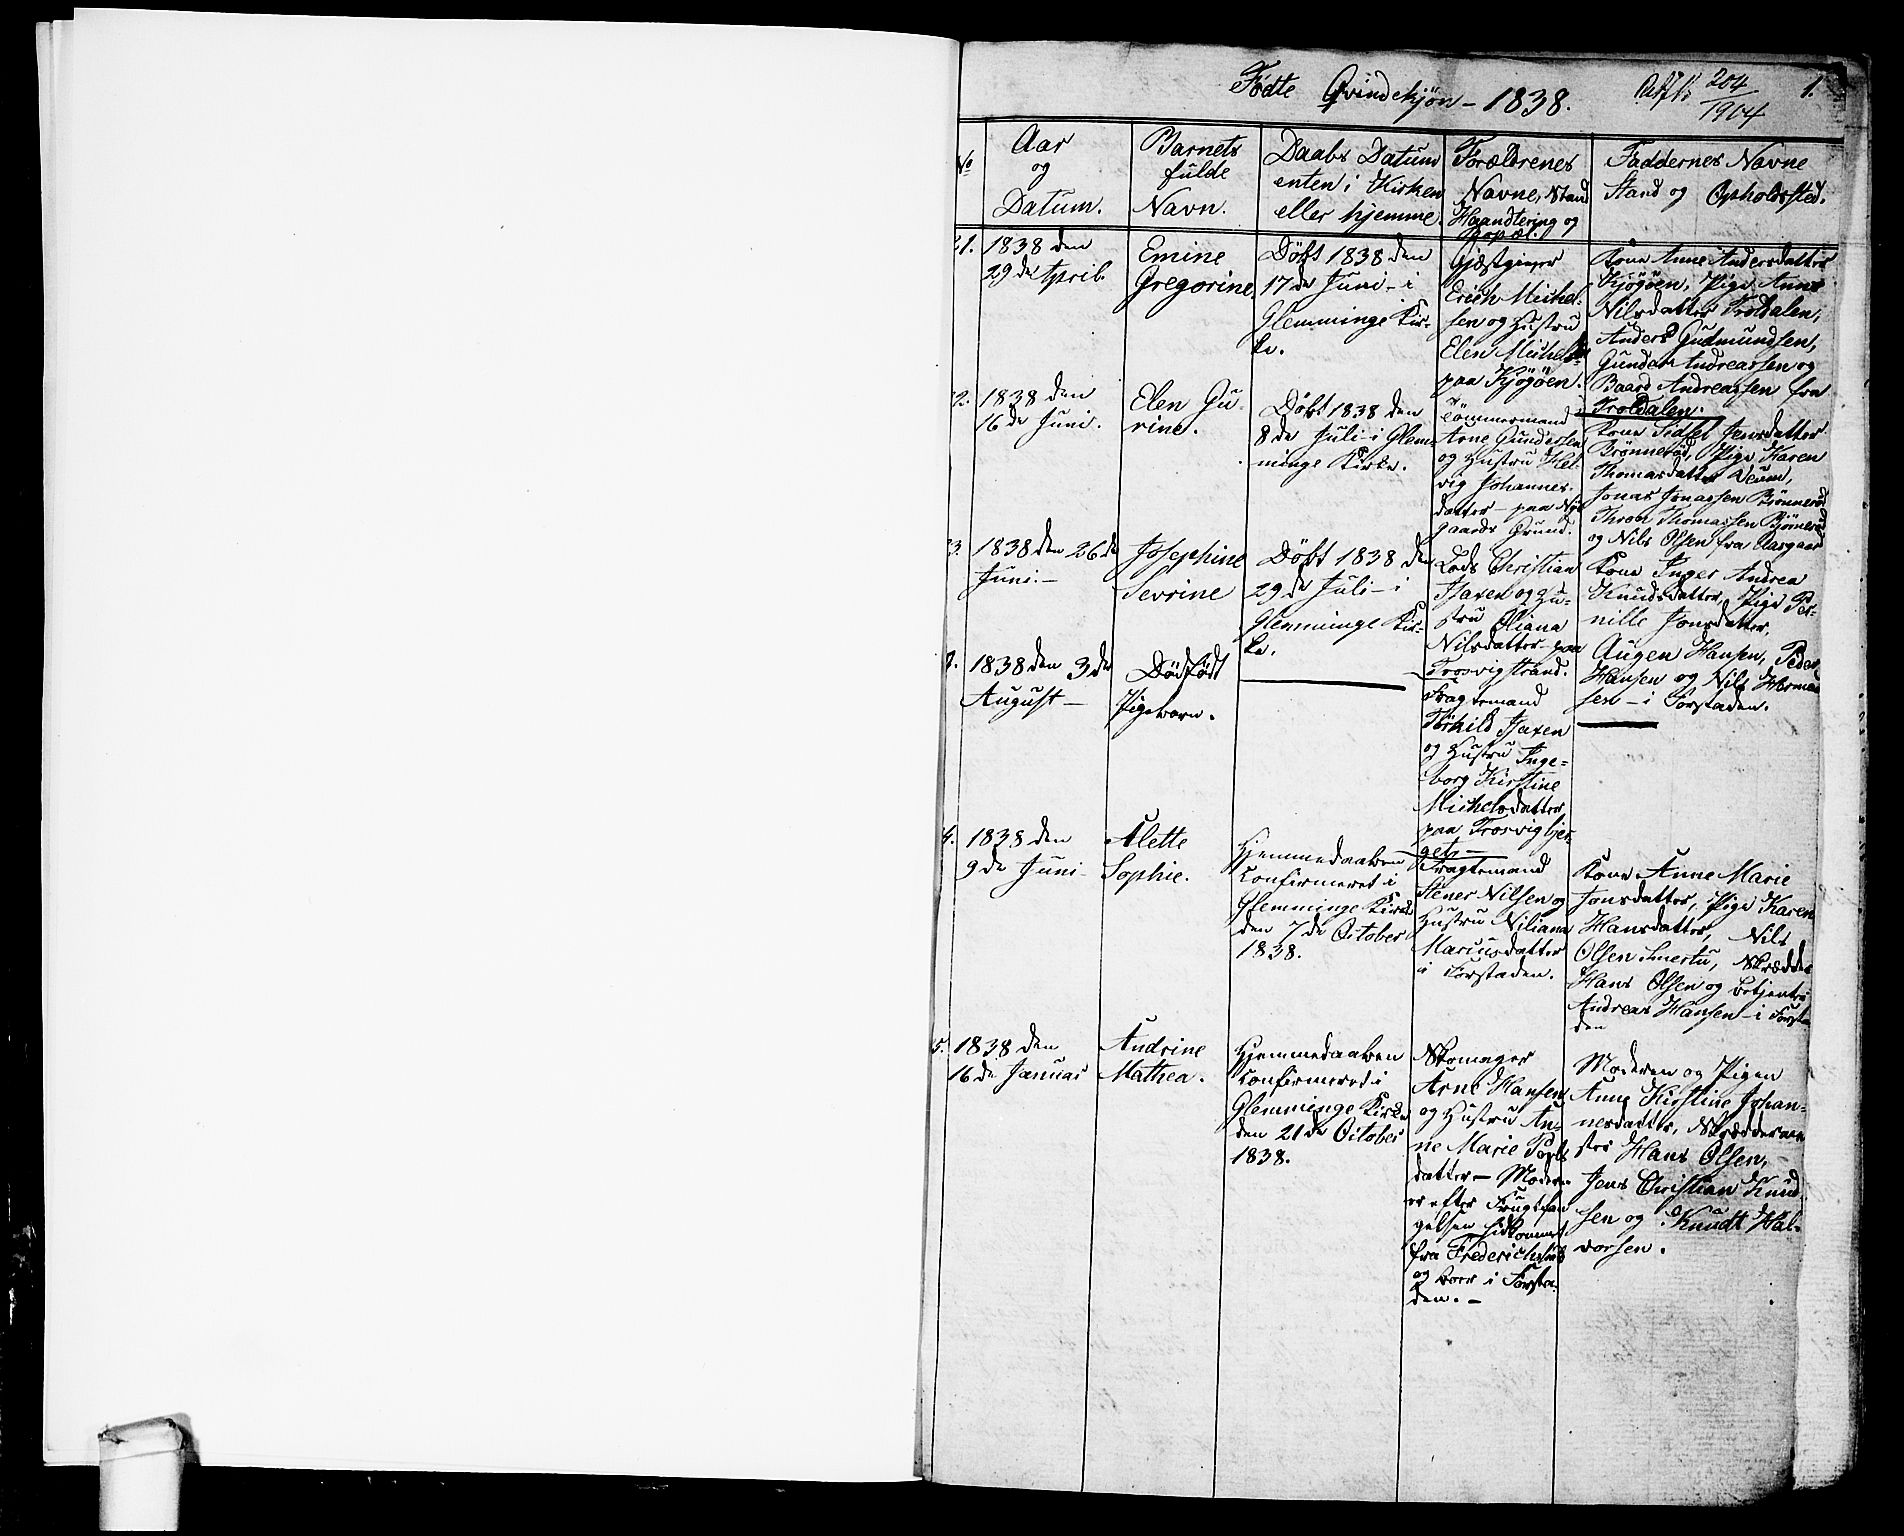 Fødte Qvindekjøn – 1838.
204/1904
1.
No
Aar
og
Datum.
Barnets
fulde
Navn.
Daabs Datum
enten i Kirken
eller hjemme.
Forældrenes
Navne, Stand
Haandtering og
Bopæl.
Faddernes Navne
Stand og Opholdssted.
21.
1838 den
29de April.
Emine
Gregorine.
Døbt 1838 den
17de Juni – i
Glemminge Kir-
ke.
Gjæstgiver
Erich Michel-
sen og Hustru
Elen Michels-
paa Kjøgøen.
Kone Anne Andersdatter
Kjøgøen, Pige Anne
Nilsdatter Troldalen,
Anders Gudmundsen,
Gunder Andreassen og
Baard Andreassen fra
Troldalen.
22.
1838 den
16de Juni.
Elen Gu-
rine.
Døbt 1838 den
8de Juli – i Glem-
minge Kirke.
Tømmermand
Arne Gundersen
og Hustru Hel-
vig Johannes-
datter – paa Ny-
gaards Grund.
Kone Sidsel Jensdatter
Brønnerød, Pige Karen
Thomasdatter Veum,
Jonas Jonassen Brønnerød
Thron Thomassen Bjørnerød
og Nils Olsen fra Aasgaard
23.
1838 den 26de
Juni –
Josephine
Sevrine
Døbt 1838 den
29de Juli – i
Glemminge Kir-
ke.
Lods Christian
Isaxen og Hu-
stru Oliana
Nilsdatter – paa
Trosvigstrand.
Kone Inger Andrea
Knudsdatter, Pige Per-
nille Jonsdatter,
Augen Hansen, Peder
Hansen og Nils Herman-
sen – i Forstaden.
1838 den 3de
August –
Dødfødt
Pigebarn.
Fragtemand
Torkild Isaxen
og Hustru Inge-
borg Kirstine
Michelsdatter
paa Trosvigbjer-
get –
4.
1838 den
9de Juni –
Alette
Sophie.
Hjemmedaaben
Confirmeret i
Glemminge Kirke
den 7de October
1838.
Fragtemand
Stener Nilsen og
Hustru Niliana
Marcusdatter
i Forstaden.
Kone Anne Marie
Jonsdatter, Pige Karen
Hansdatter, Nils
Olsen Smertu, Skrædder
Hans Olsen og Betjent
Andreas Hansen – i Forsta-
den
5.
1838 den
16de Januar
Andrine
Mathea.
Hjemmedaaben
Confirmeret i
Glemminge Kirke
den 21de October
1838.
Skomager
Arne Hansen
og Hustru An-
ne Marie Pouls
datter – Moderen
er efter
fra Frederichshald
og boer i Forsta-
den. –
Moderen og Pigen
Anne Kirstine Johan-
nesdatter, Skrædderme-
ster Hans Olsen, –
Jens Christian Knud-
sen og Knudt Hal-
vorsen.